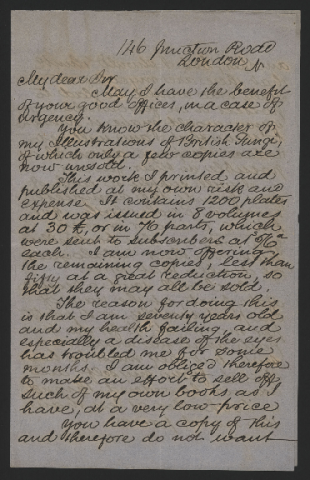 146 Junction Road
London N
My dear Sir
May I have the benefit
of your good offices, in a case of
urgency.
You know the character of
my Illustrations of British Fungi,
of which only a few copies are
now unsold.
This work I printed and
published at my own risk and
expense. It contains 1200 plates
and was issued in 8 volumes
at 30 £, or in 76 parts, which
were sent to subscribers at
each. I am now offering
the remaining copies, less than
fifty at a great reduction, so
that they may all be sold.
The reason for doing this
is that I am seventy years old
and my health failing, and
especially a disease of the eyes
has troubled me for some
months. I am obliged therefore
to make an effort to sell off
such of my own books, as I
have, at a very low price
You have a copy of this
and therefore do not want